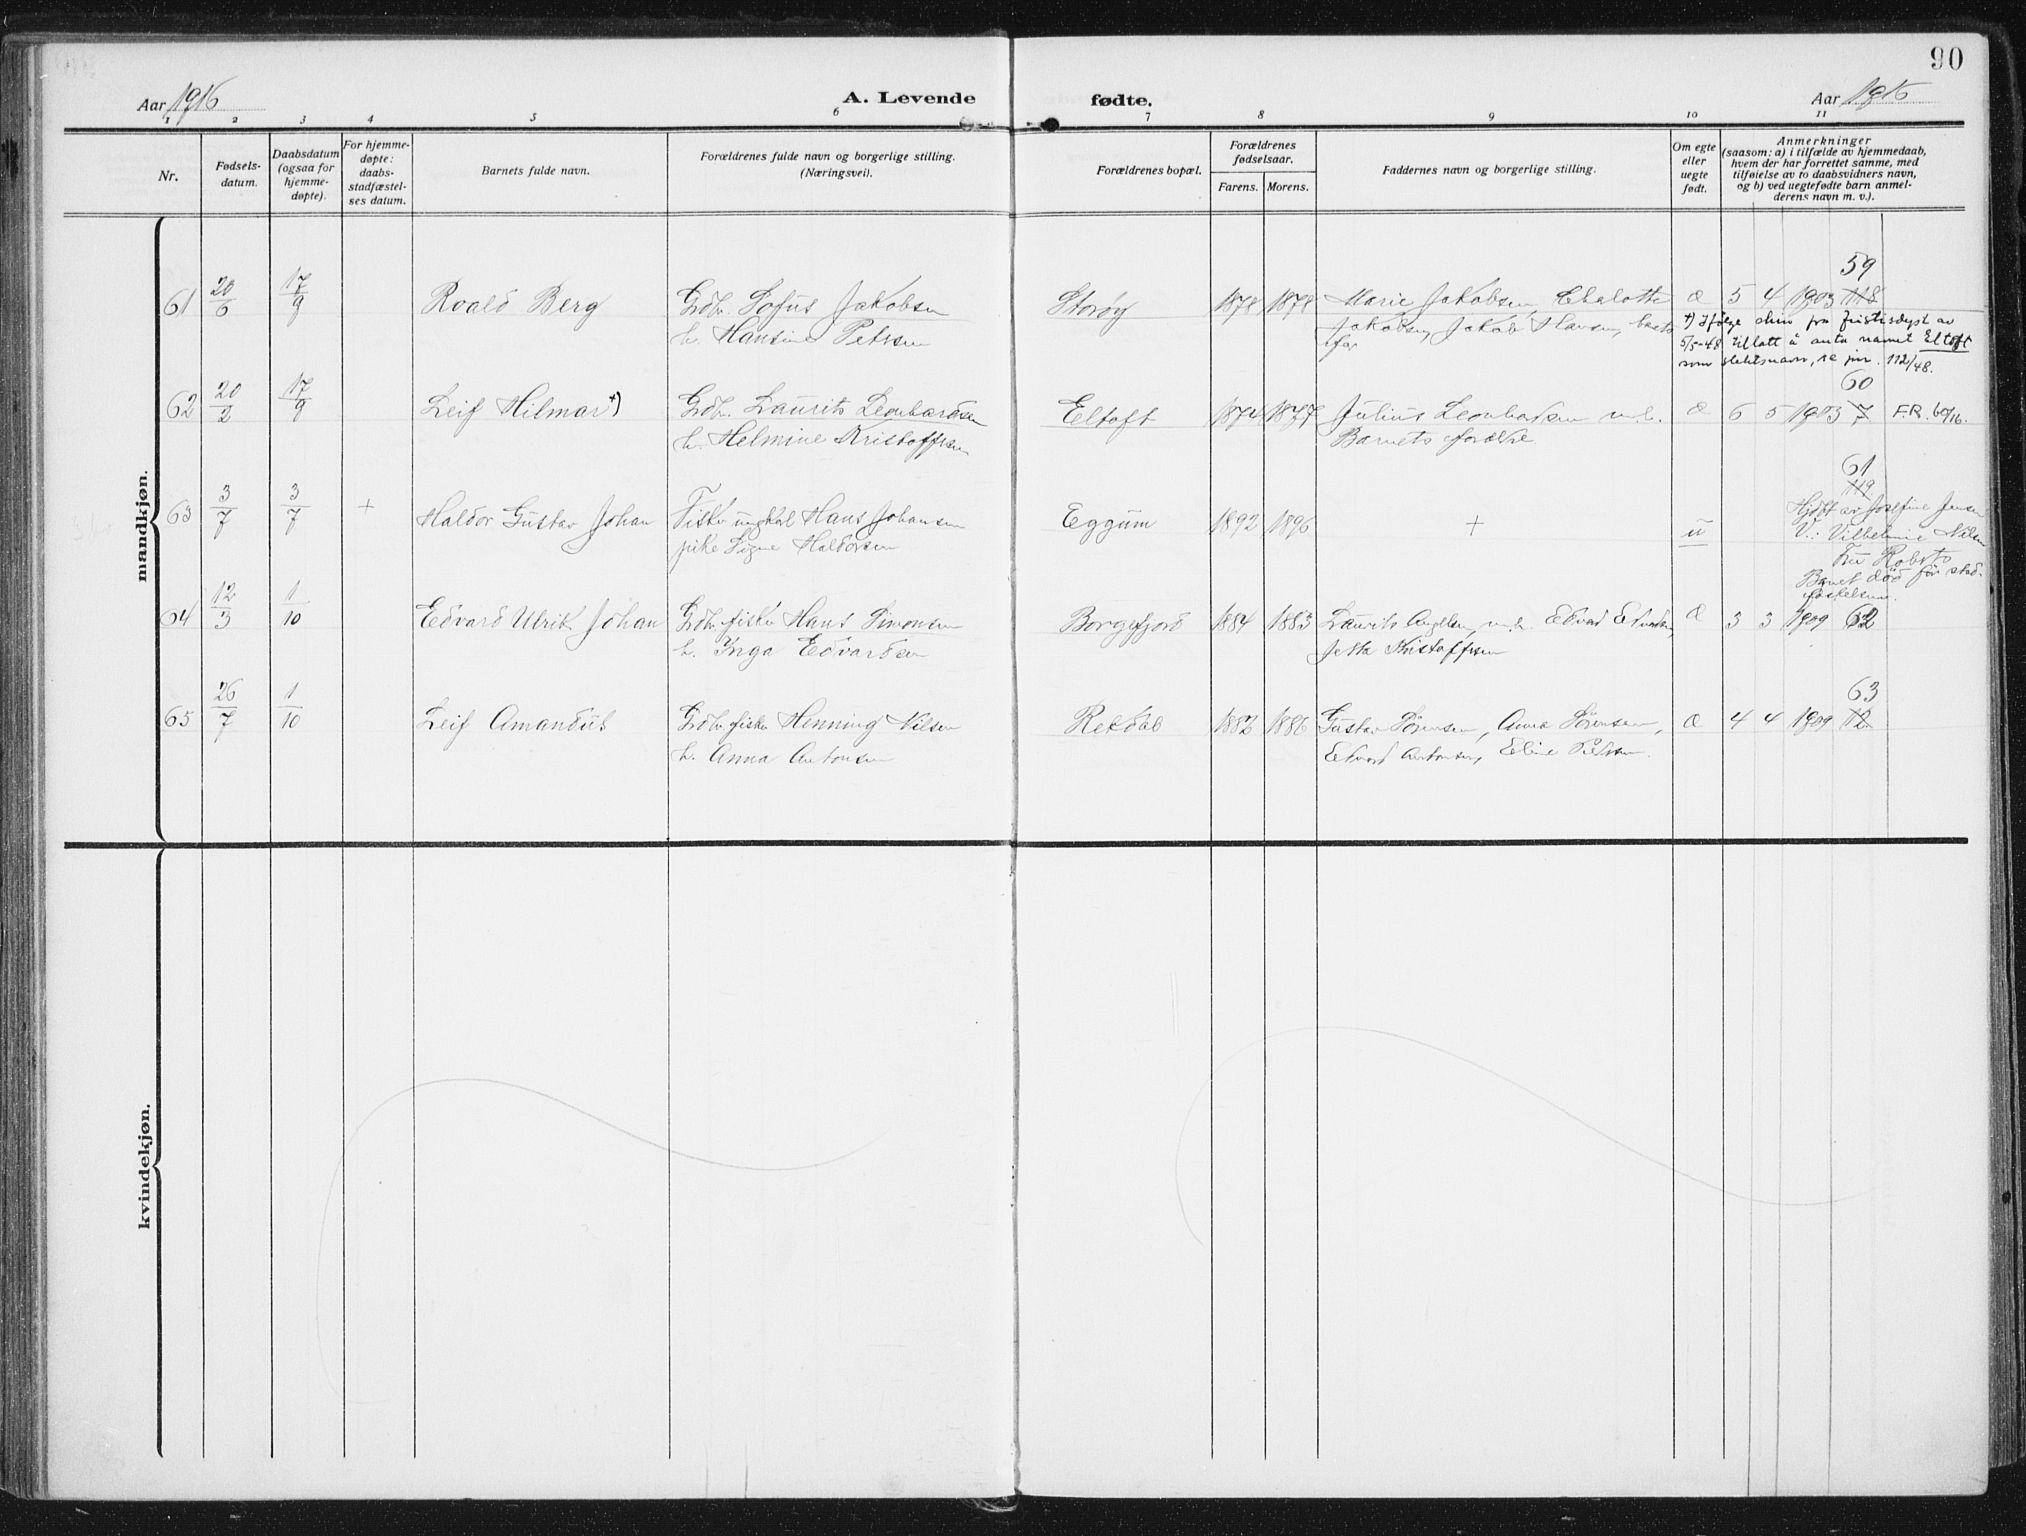 90
Aar 1916
A. Levende
fødte.
Aar 1916
1 2 3 4 5 6 7 8 9 10 11
Nr.
Fødsels-
datum.
Daabsdatum
(ogsaa for
hjemme-
døpte).
For hjemme-
døpte:
daabs-
stadfæstel-
ses datum.
Barnets fulde navn.
Forældrenes fulde navn og borgerlige stilling.
(Næringsvei).
Forældrenes bopæl.
Forældrenes
fødselsaar.
Farens. Morens.
Faddernes navn og borgerlige stilling.
Om egte
eller
uegte
født.
Anmerkninger
(saasom: a) i tilfælde av hjemmedaab,
hvem der har forrettet samme, med
tilføielse av to daabsvidners navn,
og b) ved uegtefødte barn anmel-
derens navn m. v.).
mandkjøn.
59
61 20/6 17/9 Roald Berg Gdbr. Sofus Jakobsen Storøy 1878 1878 Marie Jakobsen, Chalotte æ 5 4 1903 118
h. Hansine Petersen Jakobsen, Jakob Hansen, barnets
far
+) Ifølge skriv fra Justisdept av
5/5-48 tillatt å anta navnet Eltoft
som slektsnavn, se jnr. 112/48.
60
62 20/2 17/9 Leif Hilmar +) Gdbr. Laurits Leonhardsen Eltoft 1874 1877 Julius Leonhardsen m. h. æ 6 5 1903 7 F.R. 60/16.
h. Helmine Kristoffersen Barnets forældre
61
119
63 3/7 3/7 + Haldor Gustav Johan Fisker ungkal Hans Johansen Eggum 1892 1896 + u Hjdøbt av Josefine Jensen
pike Signe Haldorsen V.: Vilhelmine Nilsen
Fru Roberts
Barnet död för stad-
fæstelsen.
64 12/3 1/10 Edvard Ulrik Johan Gdbr. fisker Hans Simonsen Borgefjord 1884 1883 Laurits Angelsen, m. h. Edvard Edvardsen, æ 3 3 1909 62
h. Inga Edvardsen Jetta Kristoffersen
63
65 26/7 1/10 Leif Amandus Gdbr. fisker Henning Nilsen Rekdal 1882 1886 Gustav Sørensen, Anna Sørensen, æ 4 4 1909 12
h. Anna Antonsen Edvard Antonsen, Eline Petersen.
kvindekjøn.